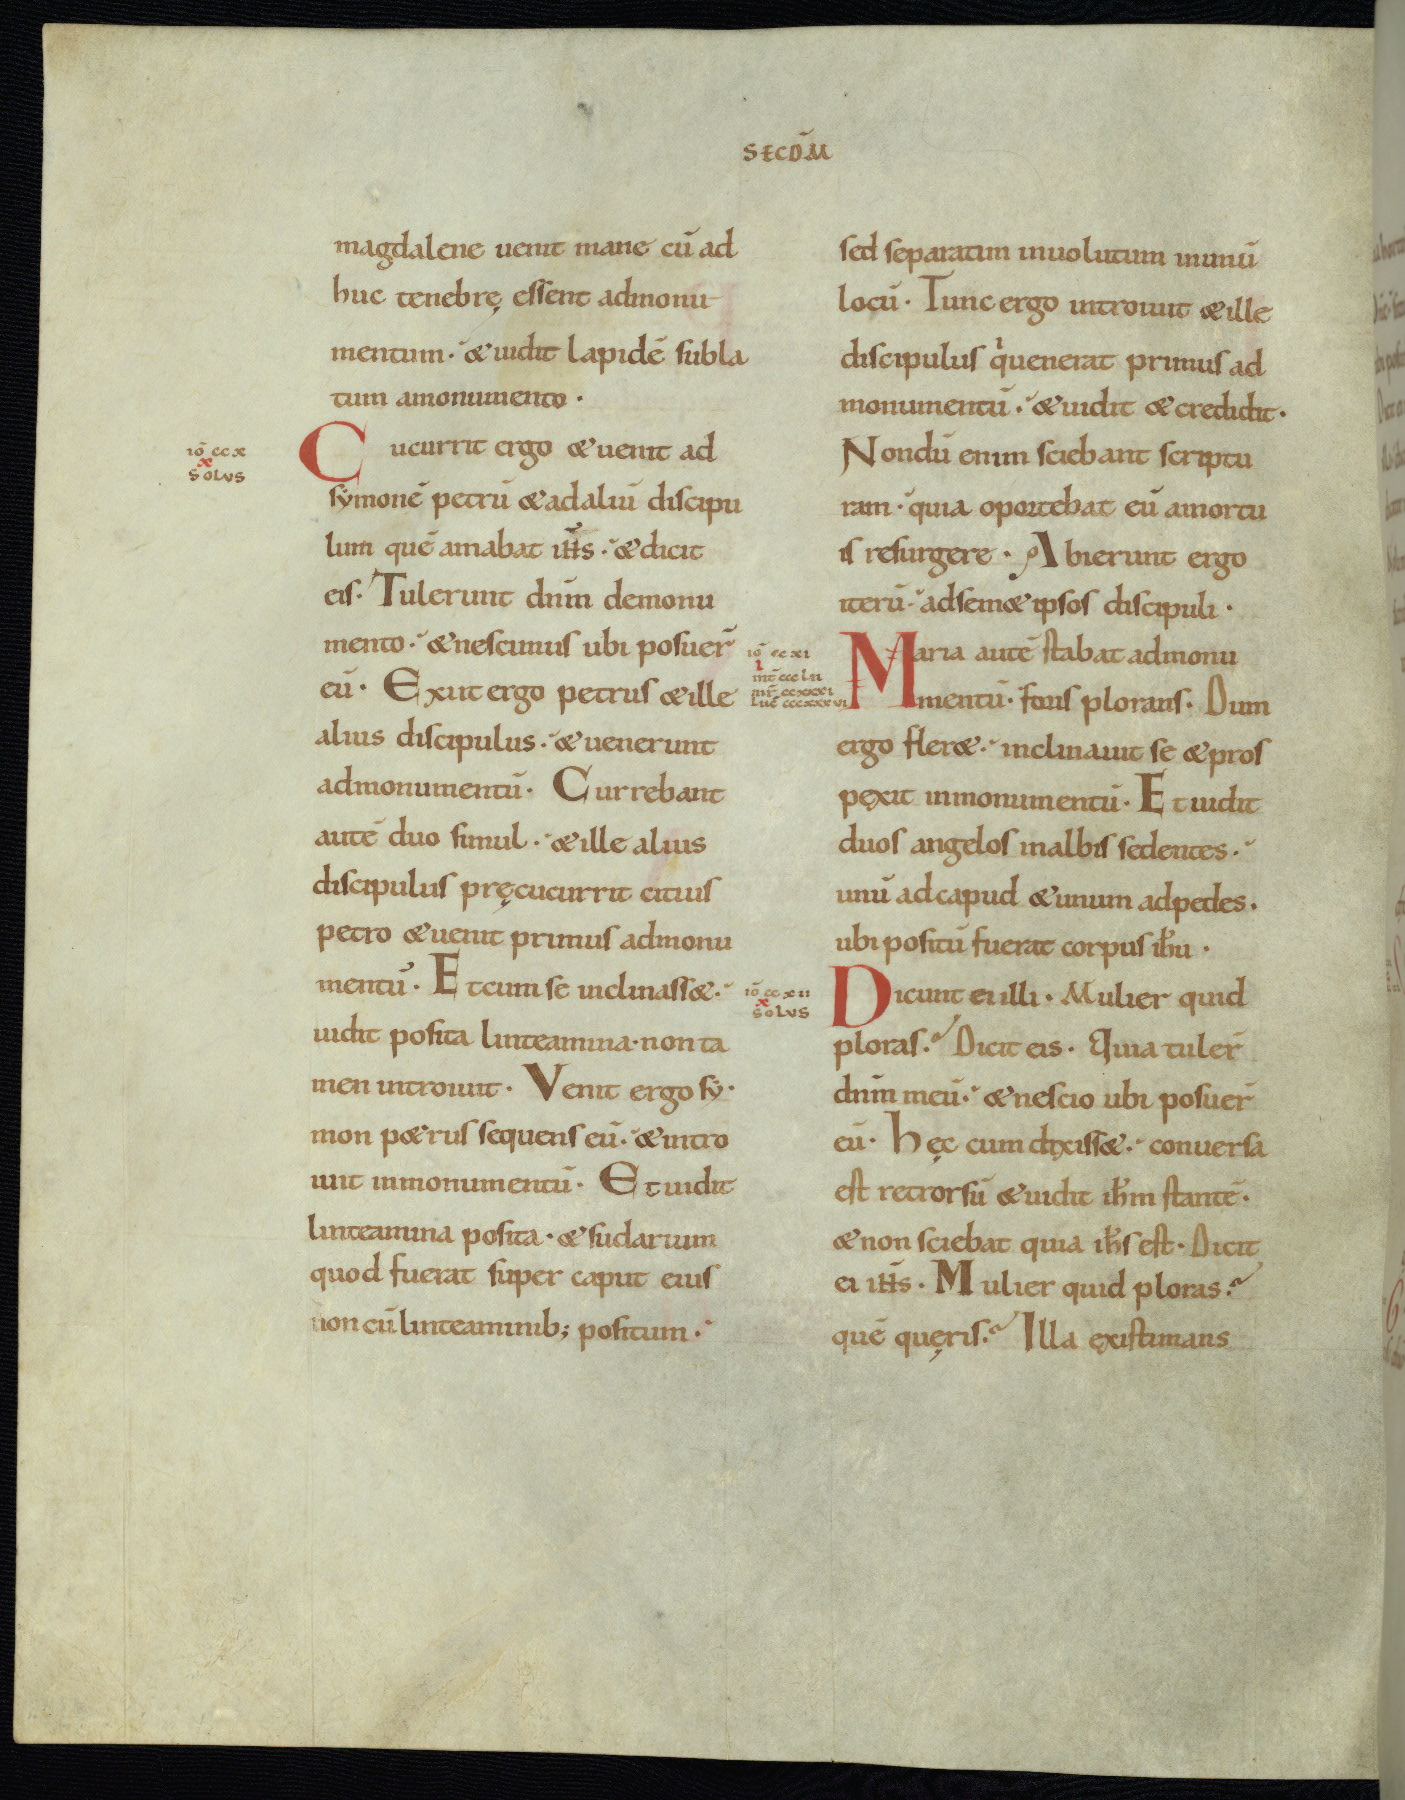 SECDM̄
magdalene uenit mane cū ad
huc tenebrę essent admonu
mentum· & uidit lapidē subla
tum amonumento·
iō ccx
x
SOLVS
Cucurrit ergo & uenit ad
sẏmonē petrū & adaliū discipu
lum quē amabat ih̄s· & dicit
eis· Tulerunt dn̄m demonu
mento· & nescimus ubi posuer̄
eū· Exiit ergo petrus & ille
alius discipulus· & uenerunt
admonumentū· Currebant
autē duo simul· & ille alius
discipulus pręcucurrit citius
petro & uenit primus admonu
mentū· Et cum se inclinass&·
uidit posita linteamina· non ta
men introiuit· Venit ergo sẏ·
mon p&rus sequens eū· & intro
iuit inmonumentū· Et uidit
linteamina posita· & sudarium
quod fuerat super caput eius
non cū linteaminib; positum·
sed separatim inuolutum inunū
locū· Tunc ergo introiuit & ille
discipulus qͥ uenerat primus ad
monumentū· & uidit & credidit·
Nondū enim sciebant scriptu
ram· quia oportebat eū amortu
is resurgere· Abierunt ergo
iterū· adsem&ipsos discipuli·
iō ccxi
i
mt̄ ccclii
mr̄ ccxxxi
luc̄ cccxxxvi
Maria autē stabat admonu
mentū· foris plorans· Dum
ergo fler&· inclinauit se & pros
pęxit inmonumentū· Et uidit
duos angelos inalbis sedentes·
unū adcapud & unum adpedes·
ubi positū fuerat corpus ih̄u·
iō ccxii
x
SOLVS
Dicunt ei illi· Mulier quid
ploras? Dicit eis· Quia tuler̄
dn̄m meū· & nescio ubi posuer̄
eū· Hęc cum dixiss&· conuersa
est retrorsū & uidit ih̄m stantē·
& non sciebat quia ih̄s est· Dicit
ei ih̄s· Mulier quid ploras?
quē quęris? Illa ęxistimans